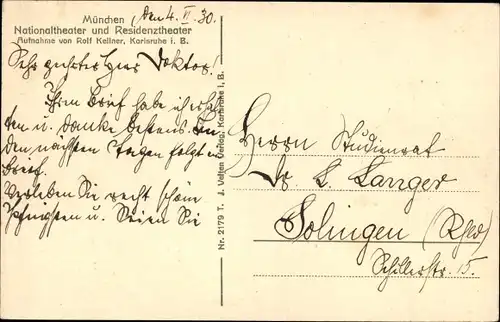 München
Nationaltheater und Residenztheater
Aufnahme von Rolf Kellner, Karlsruhe i. B.
den 4. VI. 30.
Sehr geehrter Herr Doktor!
Ihren Brief habe ich erhal
ten u. danke bestens. In
den nächsten Tagen folgt ein
Brief.
Verleben Sie recht schöne
Pfingsten u. Seien Sie
Nr. 2179 T. J. Velten Verlag, Karlsruhe i. B.
Herrn Studienrat
Dr. L. Langer
Solingen (Rhld)
Schillerstr. 15.